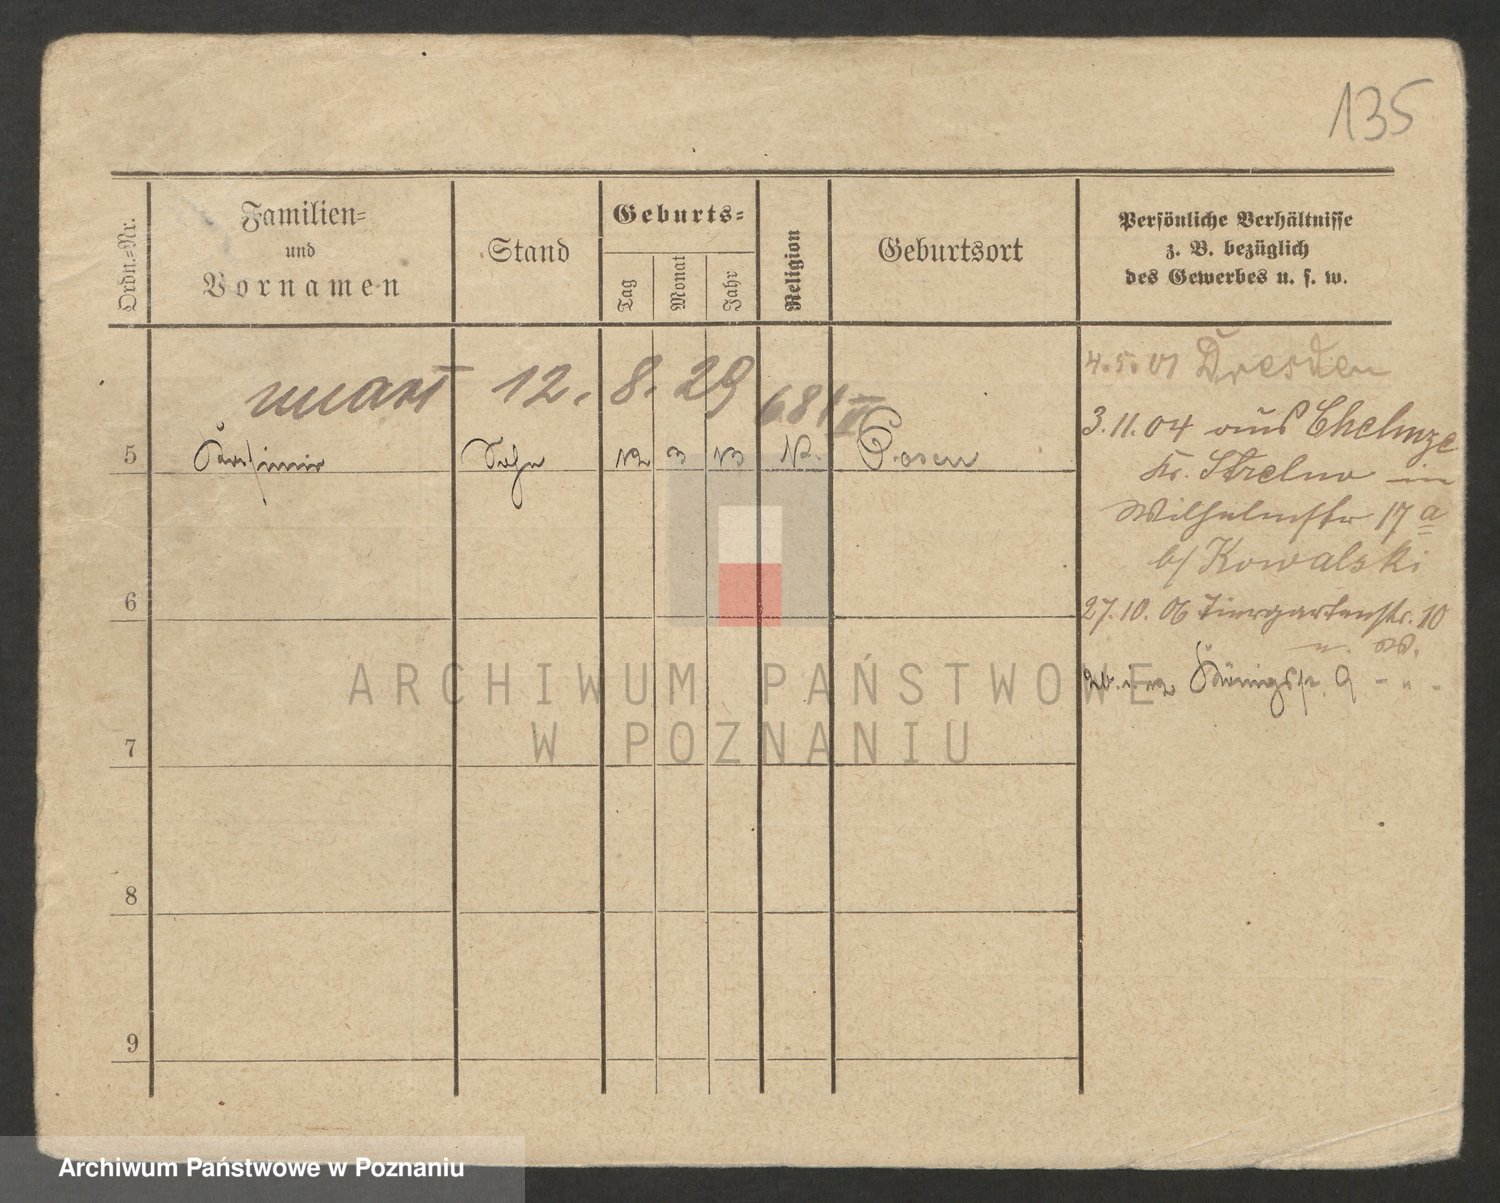 135
Ordn.=Nr.
Familien=
und
Vornamen
Stand
Geburts=
Tag
Monat
Jahr
Religion
Geburtsort
Persönliche Verhältnisse
z. B. bezüglich
des Gewerbes u. s. w.
umarł 12. 8. 29 681/II
5 Kasimir Sohn 12 3 13 K. Posen
4.5.01 Dresden
3.11.04 aus Chelmze
Kr. Strelno in
Wilhelmstr 17 a
b/ Kowalski
27.10.06 Tiergartenstr. 10
Königstr. 9 - " -
6
7
8
9
ARCHIWUM PAŃSTWOWE
W POZNANIU
Archiwum Państwowe w Poznaniu